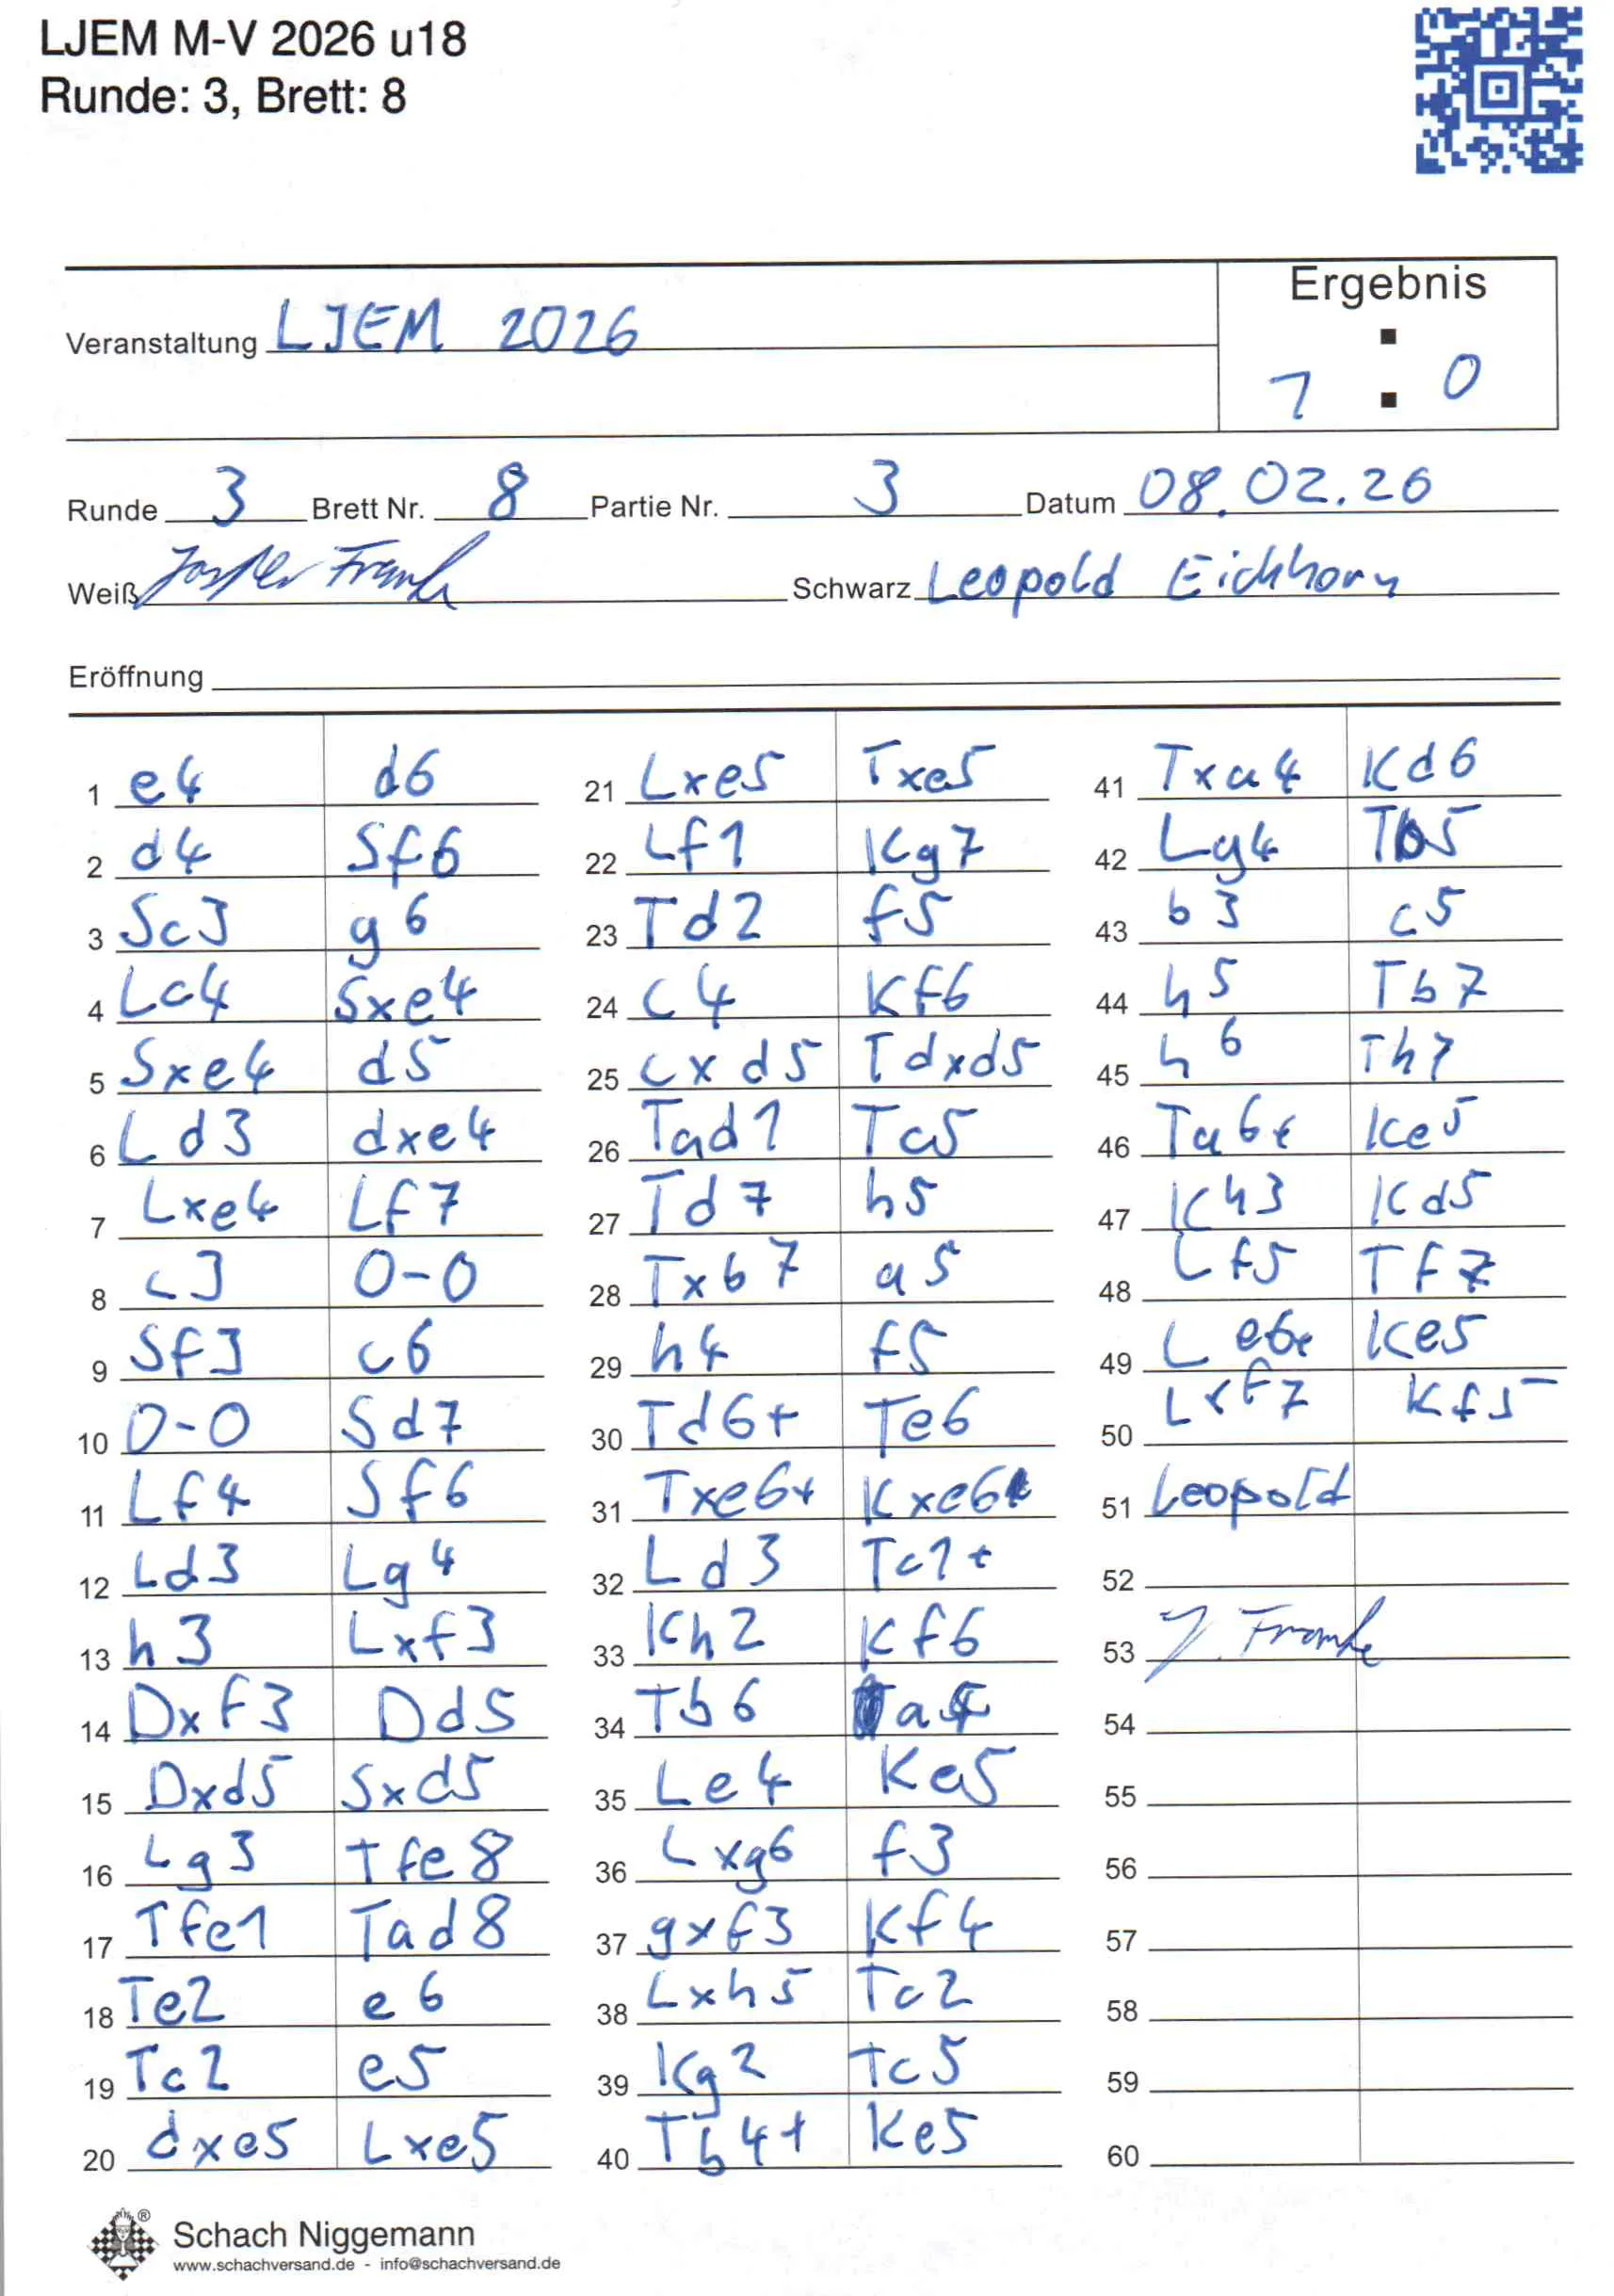 LJEM M-V 2026 u18
Runde: 3, Brett: 8
Ergebnis
Veranstaltung LJEM 2026
1 : 0
Runde 3 Brett Nr. 8 Partie Nr. 3 Datum 08.02.26
Weiß Frank Schwarz Leopold Eichhorn
Eröffnung
1 e4 d6
2 d4 Sf6
3 Sc3 g6
4 Lc4 Sxe4
5 Sxe4 d5
6 Ld3 dxe4
7 Lxe4 Lf7
8 c3 0-0
9 Sf3 c6
10 0-0 Sd7
11 Lf4 Sf6
12 Ld3 Lg4
13 h3 Lxf3
14 Dxf3 Dd5
15 Dxd5 Sxd5
16 Lg3 Tfe8
17 Tfe1 Tad8
18 Te2 e6
19 Tc2 e5
20 dxe5 Lxe5
21 Lxe5 Txe5
22 Lf1 Kg7
23 Td2 f5
24 c4 Kf6
25 cxd5 Tdxd5
26 Tad1 Tc5
27 Td7 h5
28 Txb7 a5
29 h4 f5
30 Td6+ Te6
31 Txe6+ Kxe6
32 Ld3 Tc1+
33 Kh2 Kf6
34 Tb6 a4
35 Le4 Ke5
36 Lxg6 f3
37 gxf3 Kf4
38 Lxh5 Tc2
39 Kg2 Tc5
40 Tb4+ Ke5
41 Txa4 Kd6
42 Lg4 Tb5
43 b3 c5
44 h5 Tb7
45 h6 Th7
46 Ta6+ Ke5
47 Kh3 Kd5
48 Lf5 Tf7
49 Le6+ Ke5
50 Lxf7 Kf5
51 Leopold
52
53 J. Franke
54
55
56
57
58
59
60
Schach Niggemann
www.schachversand.de - info@schachversand.de